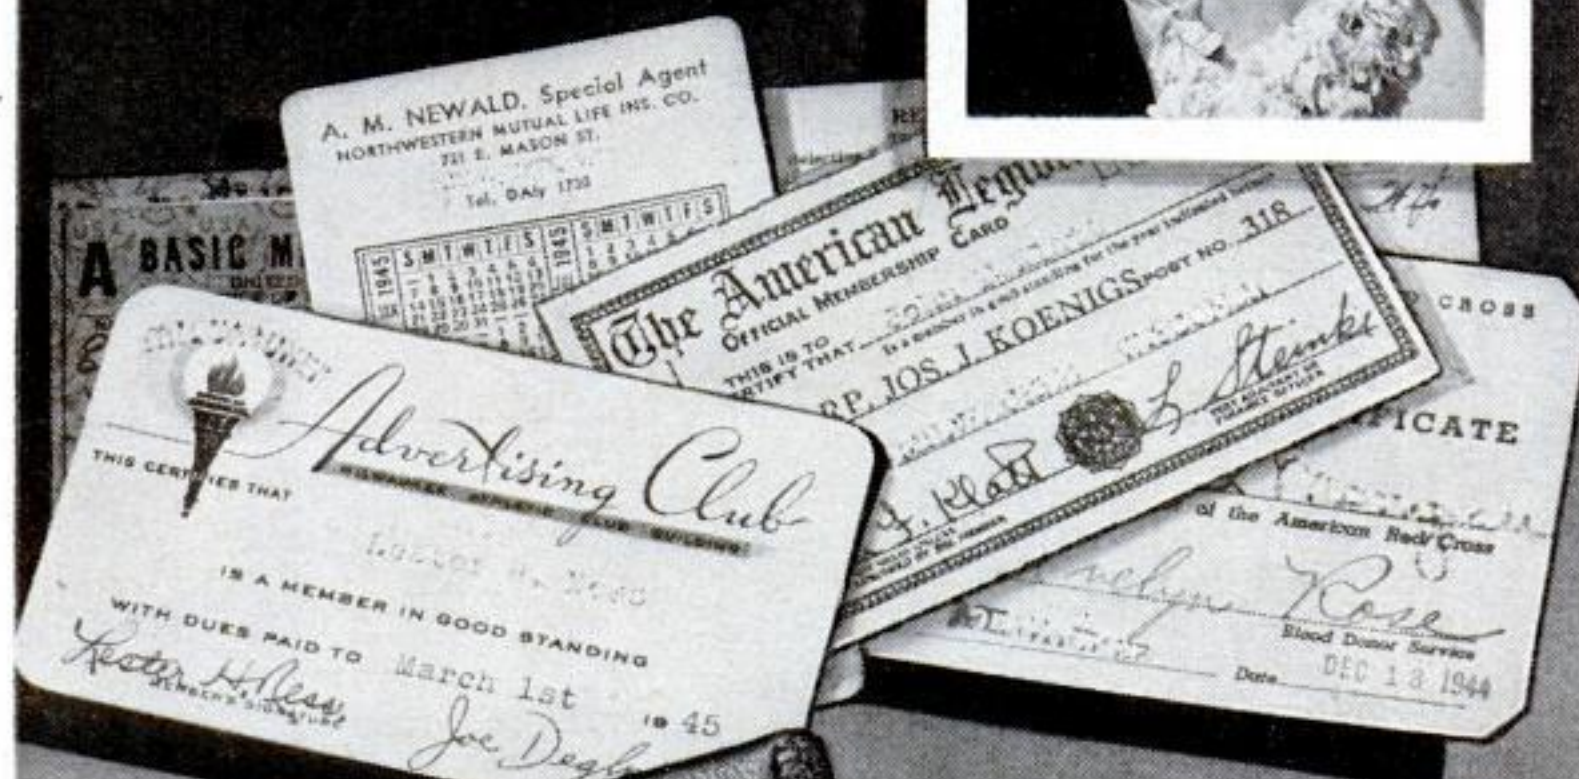 A. M. NEWALD, Special Agent
NORTHWESTERN MUTUAL LIFE INS. CO.
721 E. MASON ST.
Tel. DAly 1730
1945 S M T W T F S 1945 S M T W T F S
A BASIC M
The American Legion
OFFICIAL MEMBERSHIP CARD
THIS IS TO
CERTIFY THAT
is a member in good standing for the year indicated
RP. JOS. J. KOENIGS POST NO. 318
L Steinke
POST ADJUTANT OR
FINANCE OFFICER
F. Klatt
CROSS
FICATE
of the American Red Cross
velyn Rose
Blood Donor Service
Date DEC 13 1944
MILWAUKEE
Advertising Club
MILWAUKEE ATHLETIC CLUB BUILDING
THIS CERTIFIES THAT
Lester H. Ness
IS A MEMBER IN GOOD STANDING
WITH DUES PAID TO March 1st 19 45
Lester H Ness
MEMBER'S SIGNATURE
Joe Degl